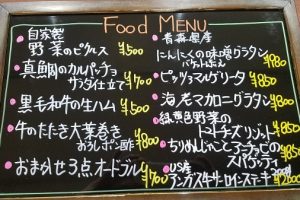 Food MENU
自家製
野菜のピクルス ¥500
真鯛のカルパッチョ
サラダ仕立て ¥700
黒毛和牛の生ハム ¥500
牛のたたき大葉巻き
おろしポン酢 ¥800
おまかせ3点オードブル ¥700
青森県産
にんにくの味噌グラタン
バケット添え ¥880
ピッツァマルゲリータ ¥850
海老マカロニグラタン ¥800
緑黄色野菜の
トマトチーズリゾット ¥850
ちりめんじゃことアンチョビの
スパゲッティ ¥850
US産
サーロインステーキ ¥2000